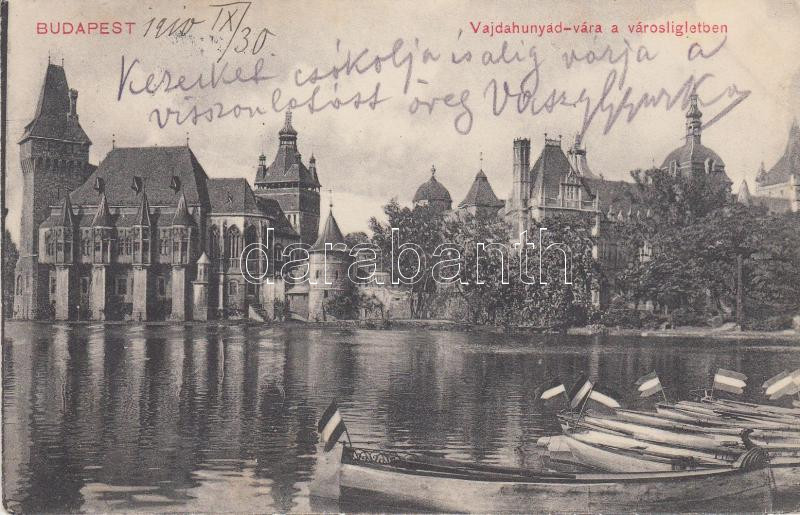 BUDAPEST 1910 IX/30 Vajdahunyad-vára a városligletben
Kezeiket csókolja s alig várja a
viszontlátást öreg
darabanth